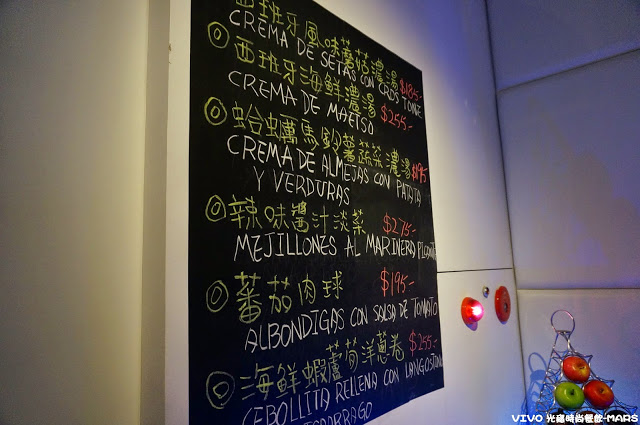 西班牙風味蘑菇濃湯 $185-
CREMA DE SETAS CON CROSTONE
◎西班牙海鮮濃湯 $255-
CREMA DE MAETSO
◎蛤蠣馬鈴薯蔬菜濃湯 $195
CREMA DE ALMEJAS CON PATATA
Y VERDURAS
◎辣味醬汁淡菜 $275-
MEJILLONES AL MARINERA
◎蕃茄肉球 $195-
ALBONDIGAS CON SALSA DE TOMATO
◎海鮮蝦蘆筍洋蔥卷 $255-
CEBOLLITA RELLENA CON LANGOSTINO
VIVO 光藏時尚餐飲-MARS